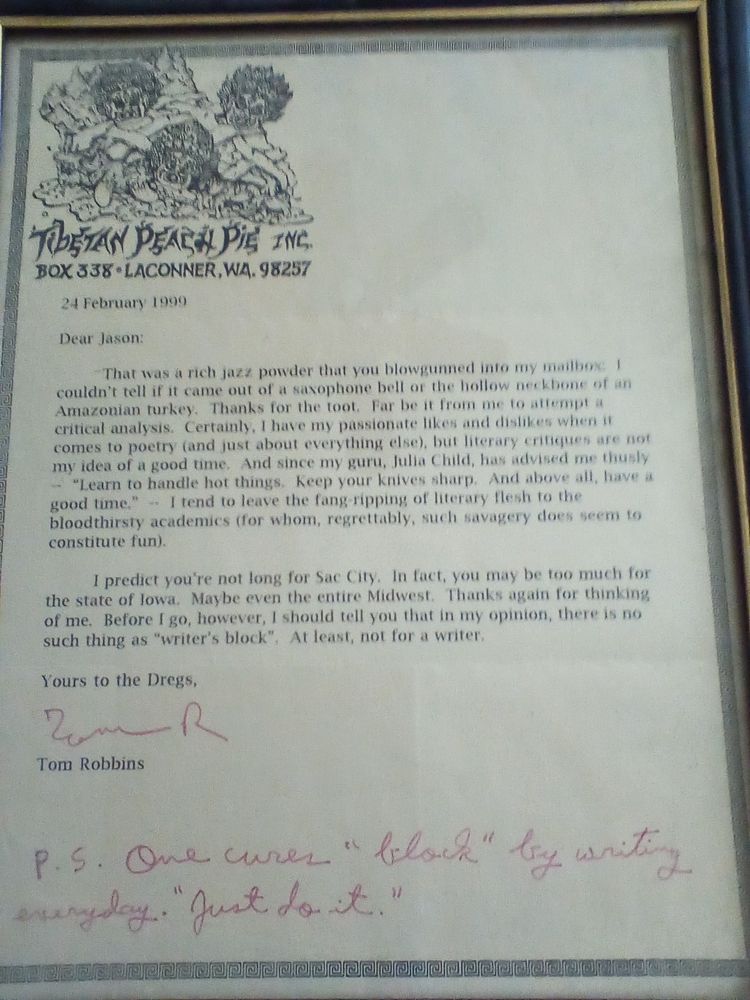 TIBETAN PEACH PIE INC.
BOX 338 • LACONNER, WA. 98257
24 February 1999
Dear Jason:
That was a rich jazz powder that you blowgunned into my mailbox. I
couldn't tell if it came out of a saxophone bell or the hollow neckbone of an
Amazonian turkey. Thanks for the toot. Far be it from me to attempt a
critical analysis. Certainly, I have my passionate likes and dislikes when it
comes to poetry (and just about everything else), but literary critiques are not
my idea of a good time. And since my guru, Julia Child, has advised me thusly
-- "Learn to handle hot things. Keep your knives sharp. And above all, have a
good time." -- I tend to leave the fang-ripping of literary flesh to the
bloodthirsty academics (for whom, regrettably, such savagery does seem to
constitute fun).
I predict you're not long for Sac City. In fact, you may be too much for
the state of Iowa. Maybe even the entire Midwest. Thanks again for thinking
of me. Before I go, however, I should tell you that in my opinion, there is no
such thing as "writer's block". At least, not for a writer.
Yours to the Dregs,
Tom R
Tom Robbins
P.S. One cures "block" by writing
everyday. "Just do it."